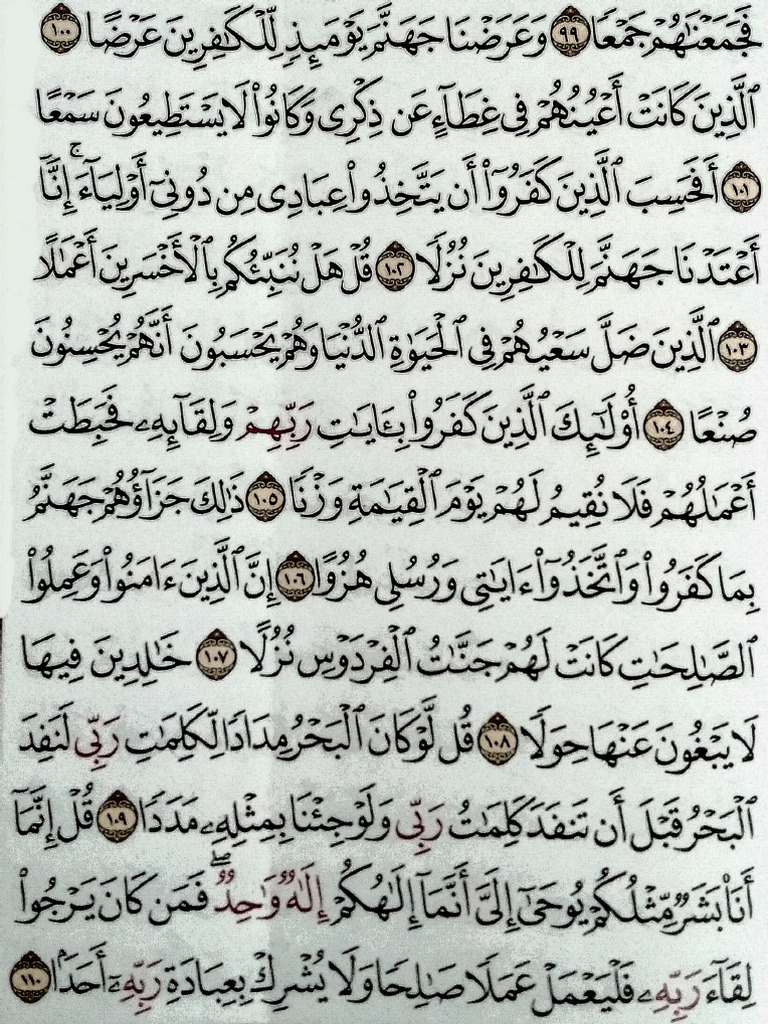 فَجَمَعْنَٰهُمْ جَمْعًا ٩٩ وَعَرَضْنَا جَهَنَّمَ يَوْمَئِذٍ لِّلْكَٰفِرِينَ عَرْضًا ١٠٠
ٱلَّذِينَ كَانَتْ أَعْيُنُهُمْ فِي غِطَآءٍ عَن ذِكْرِي وَكَانُوا۟ لَا يَسْتَطِيعُونَ سَمْعًا
١٠١ أَفَحَسِبَ ٱلَّذِينَ كَفَرُوٓا۟ أَن يَتَّخِذُوا۟ عِبَادِي مِن دُونِيٓ أَوْلِيَآءَ ۚ إِنَّآ
أَعْتَدْنَا جَهَنَّمَ لِلْكَٰفِرِينَ نُزُلًا ١٠٢ قُلْ هَلْ نُنَبِّئُكُم بِٱلْأَخْسَرِينَ أَعْمَٰلًا
١٠٣ ٱلَّذِينَ ضَلَّ سَعْيُهُمْ فِي ٱلْحَيَوٰةِ ٱلدُّنْيَا وَهُمْ يَحْسَبُونَ أَنَّهُمْ يُحْسِنُونَ
صُنْعًا ١٠٤ أُو۟لَٰٓئِكَ ٱلَّذِينَ كَفَرُوا۟ بِـَٔايَٰتِ رَبِّهِمْ وَلِقَآئِهِۦ فَحَبِطَتْ
أَعْمَٰلُهُمْ فَلَا نُقِيمُ لَهُمْ يَوْمَ ٱلْقِيَٰمَةِ وَزْنًا ١٠٥ ذَٰلِكَ جَزَآؤُهُمْ جَهَنَّمُ
بِمَا كَفَرُوا۟ وَٱتَّخَذُوٓا۟ ءَايَٰتِي وَرُسُلِي هُزُوًا ١٠٦ إِنَّ ٱلَّذِينَ ءَامَنُوا۟ وَعَمِلُوا۟
ٱلصَّٰلِحَٰتِ كَانَتْ لَهُمْ جَنَّٰتُ ٱلْفِرْدَوْسِ نُزُلًا ١٠٧ خَٰلِدِينَ فِيهَا
لَا يَبْغُونَ عَنْهَا حِوَلًا ١٠٨ قُل لَّوْ كَانَ ٱلْبَحْرُ مِدَادًا لِّكَلِمَٰتِ رَبِّي لَنَفِدَ
ٱلْبَحْرُ قَبْلَ أَن تَنفَدَ كَلِمَٰتُ رَبِّي وَلَوْ جِئْنَا بِمِثْلِهِۦ مَدَدًا ١٠٩ قُلْ إِنَّمَآ
أَنَا۠ بَشَرٌ مِّثْلُكُمْ يُوحَىٰٓ إِلَيَّ أَنَّمَآ إِلَٰهُكُمْ إِلَٰهٌ وَٰحِدٌ ۖ فَمَن كَانَ يَرْجُوا۟
لِقَآءَ رَبِّهِۦ فَلْيَعْمَلْ عَمَلًا صَٰلِحًا وَلَا يُشْرِكْ بِعِبَادَةِ رَبِّهِۦٓ أَحَدًۢا ١١٠